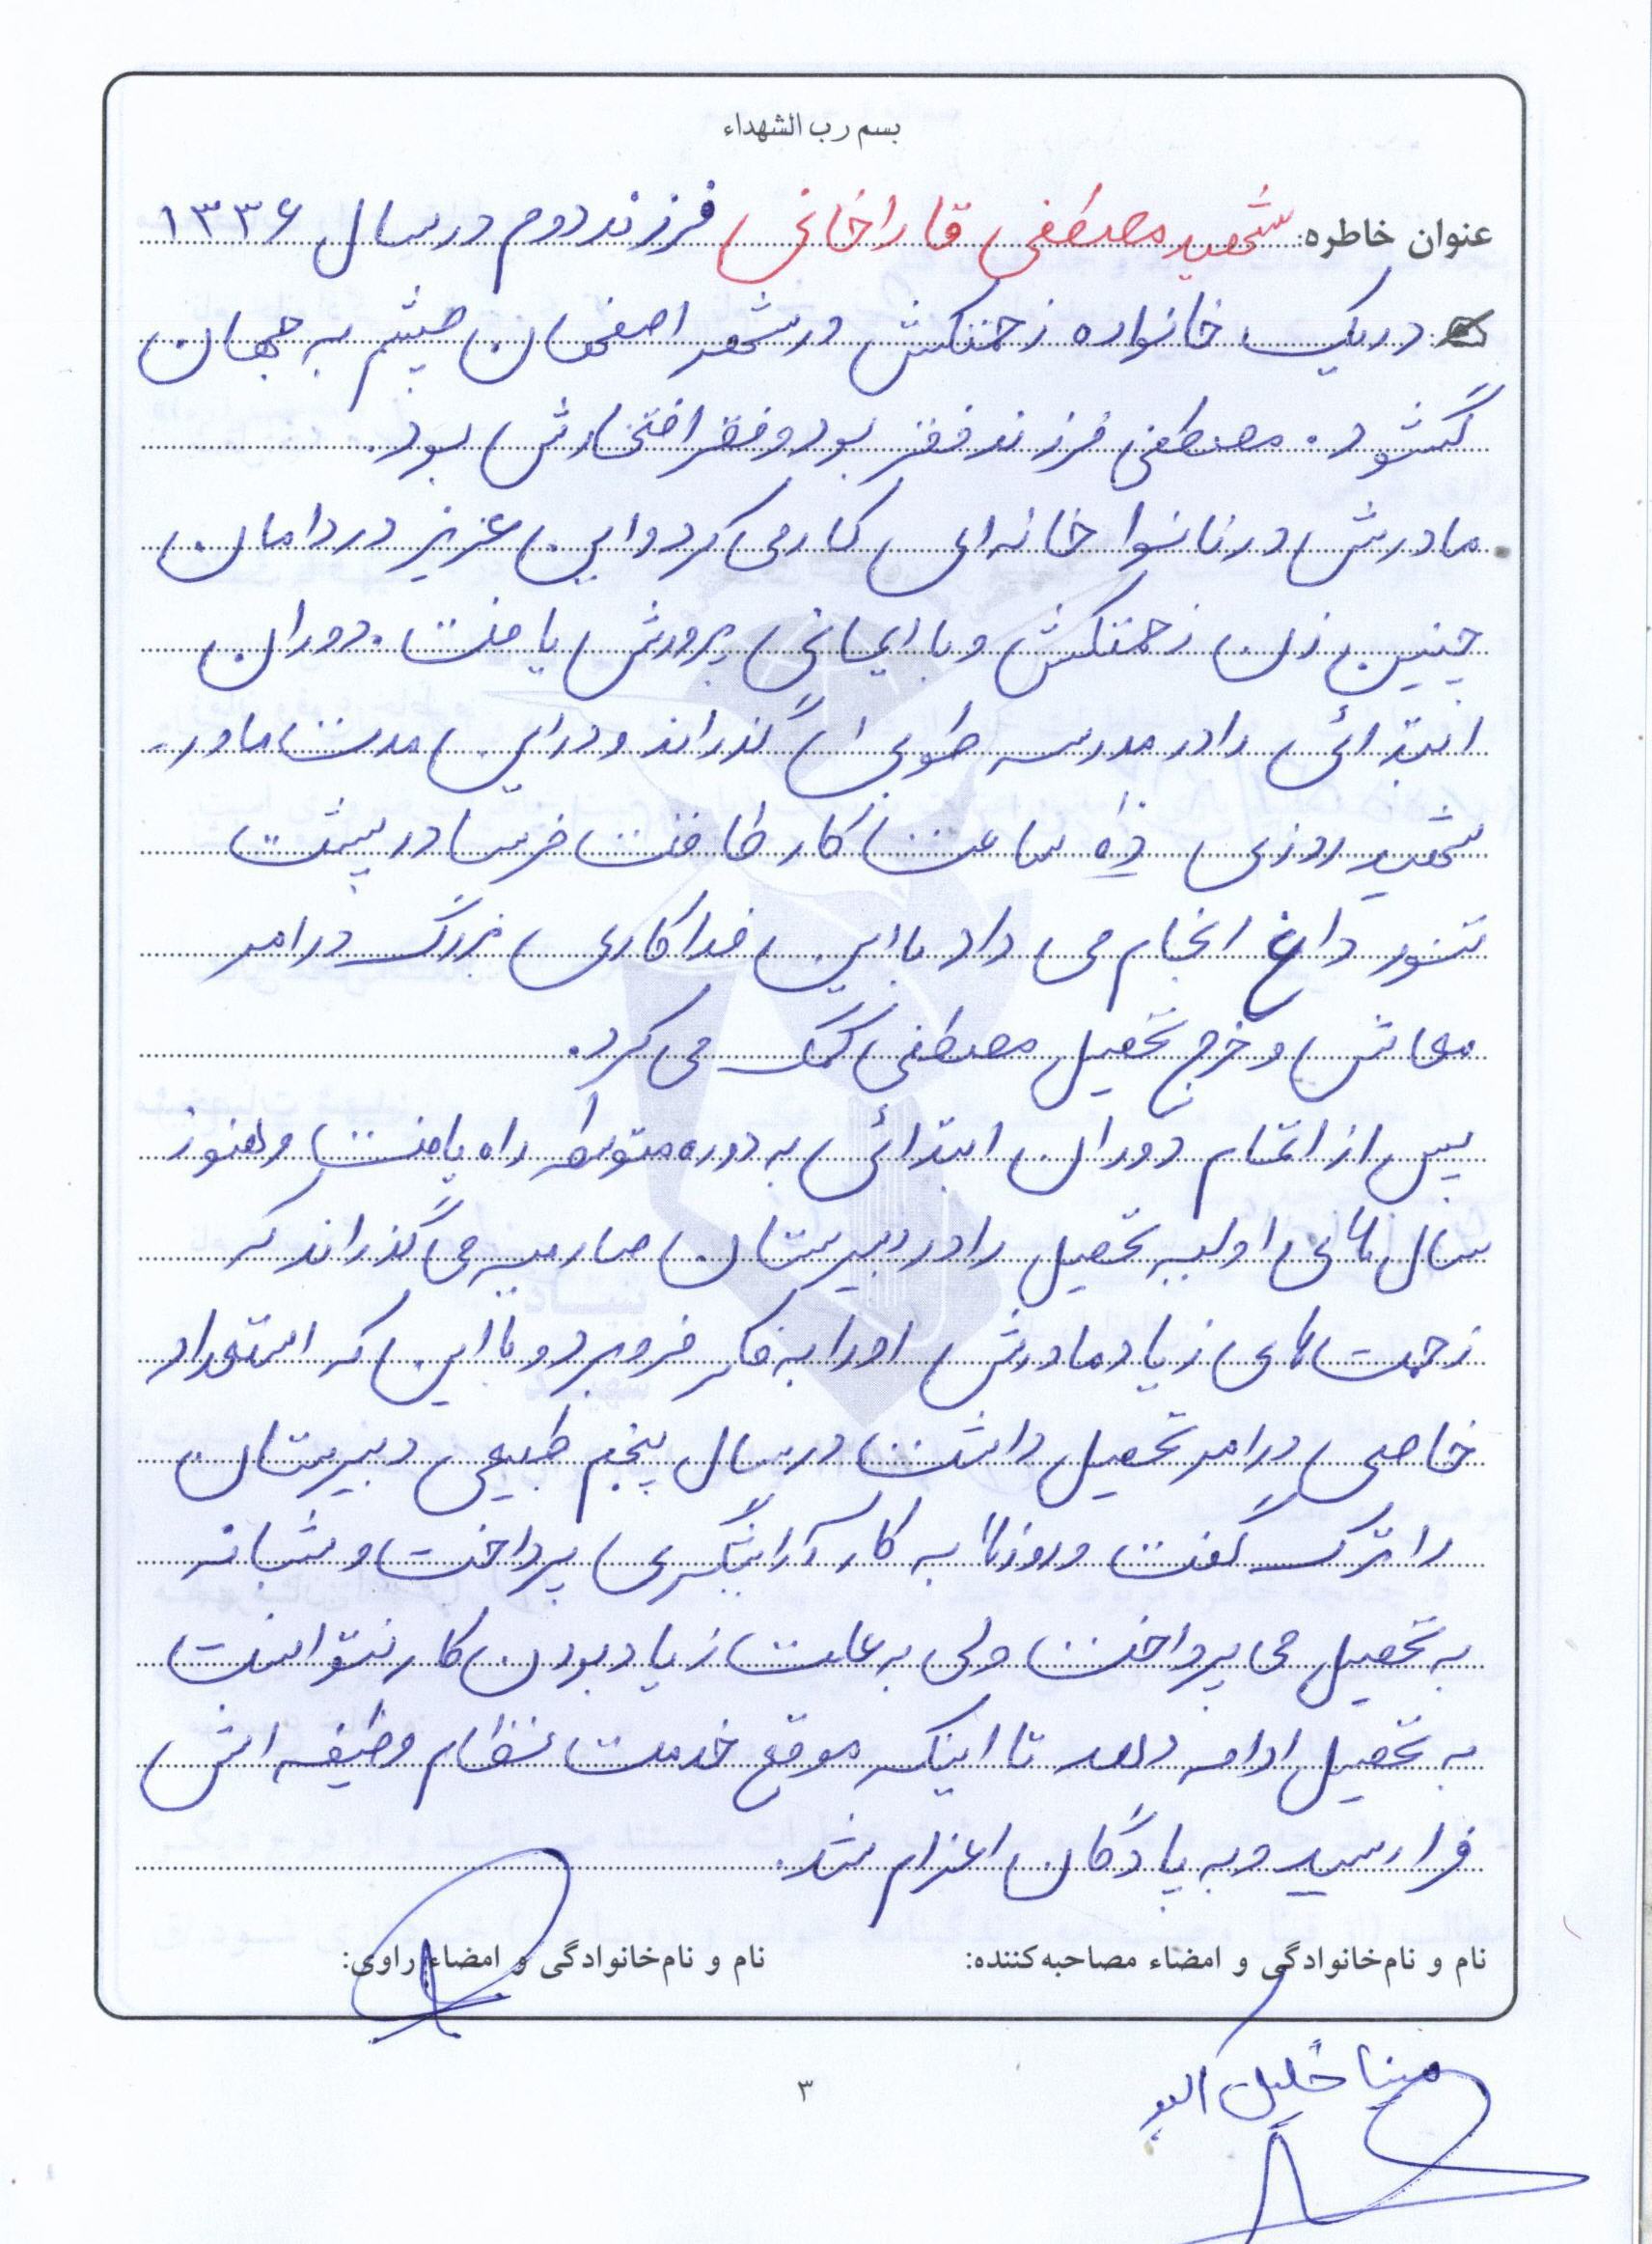 بسم رب الشهداء
عنوان خاطره: شهید مصطفی قاراخانی فرزند دوم در سال ۱۳۳۶
در یک خانواده زحمتکش در شهر اصفهان چشم به جهان
گشود. مصطفی فرزند فقر بود و فقر افتخارش بود.
مادرش در نانوا خانه‌ای کار می کرد و این عزیز در دامان
چنین زن زحمتکش و با ایمانی پرورش یافت. دوران
ابتدائی را در مدرسه طوبی گذراند و در این مدت مادر
شهید روزی ده ساعت کار طاقت فرسا در پشت
تنور داغ انجام می داد با این فداکاری بزرگ در امر
معاش و خرج تحصیل مصطفی کمک می کرد.
پس از اتمام دوران ابتدائی به دوره متوسطه راه یافت و هنوز
سال های اولیه تحصیل را در دبیرستان صارمیه می گذراند که
زحمت های زیاد مادرش او را به فکر فرو برد و با این که استعداد
خاصی در امر تحصیل داشت در سال پنجم طبیعی دبیرستان
را ترک گفت و روزها به کار آرایشگری پرداخت و شبانه
به تحصیل می پرداخت ولی به علت زیاد بودن کار نتوانست
به تحصیل ادامه دهد تا اینکه موقع خدمت نظام وظیفه اش
فرا رسید و به پادگان اعزام شد.
نام و نام‌خانوادگی و امضاء مصاحبه‌کننده: نام و نام‌خانوادگی و امضاء راوی:
مینا خلیل
۳